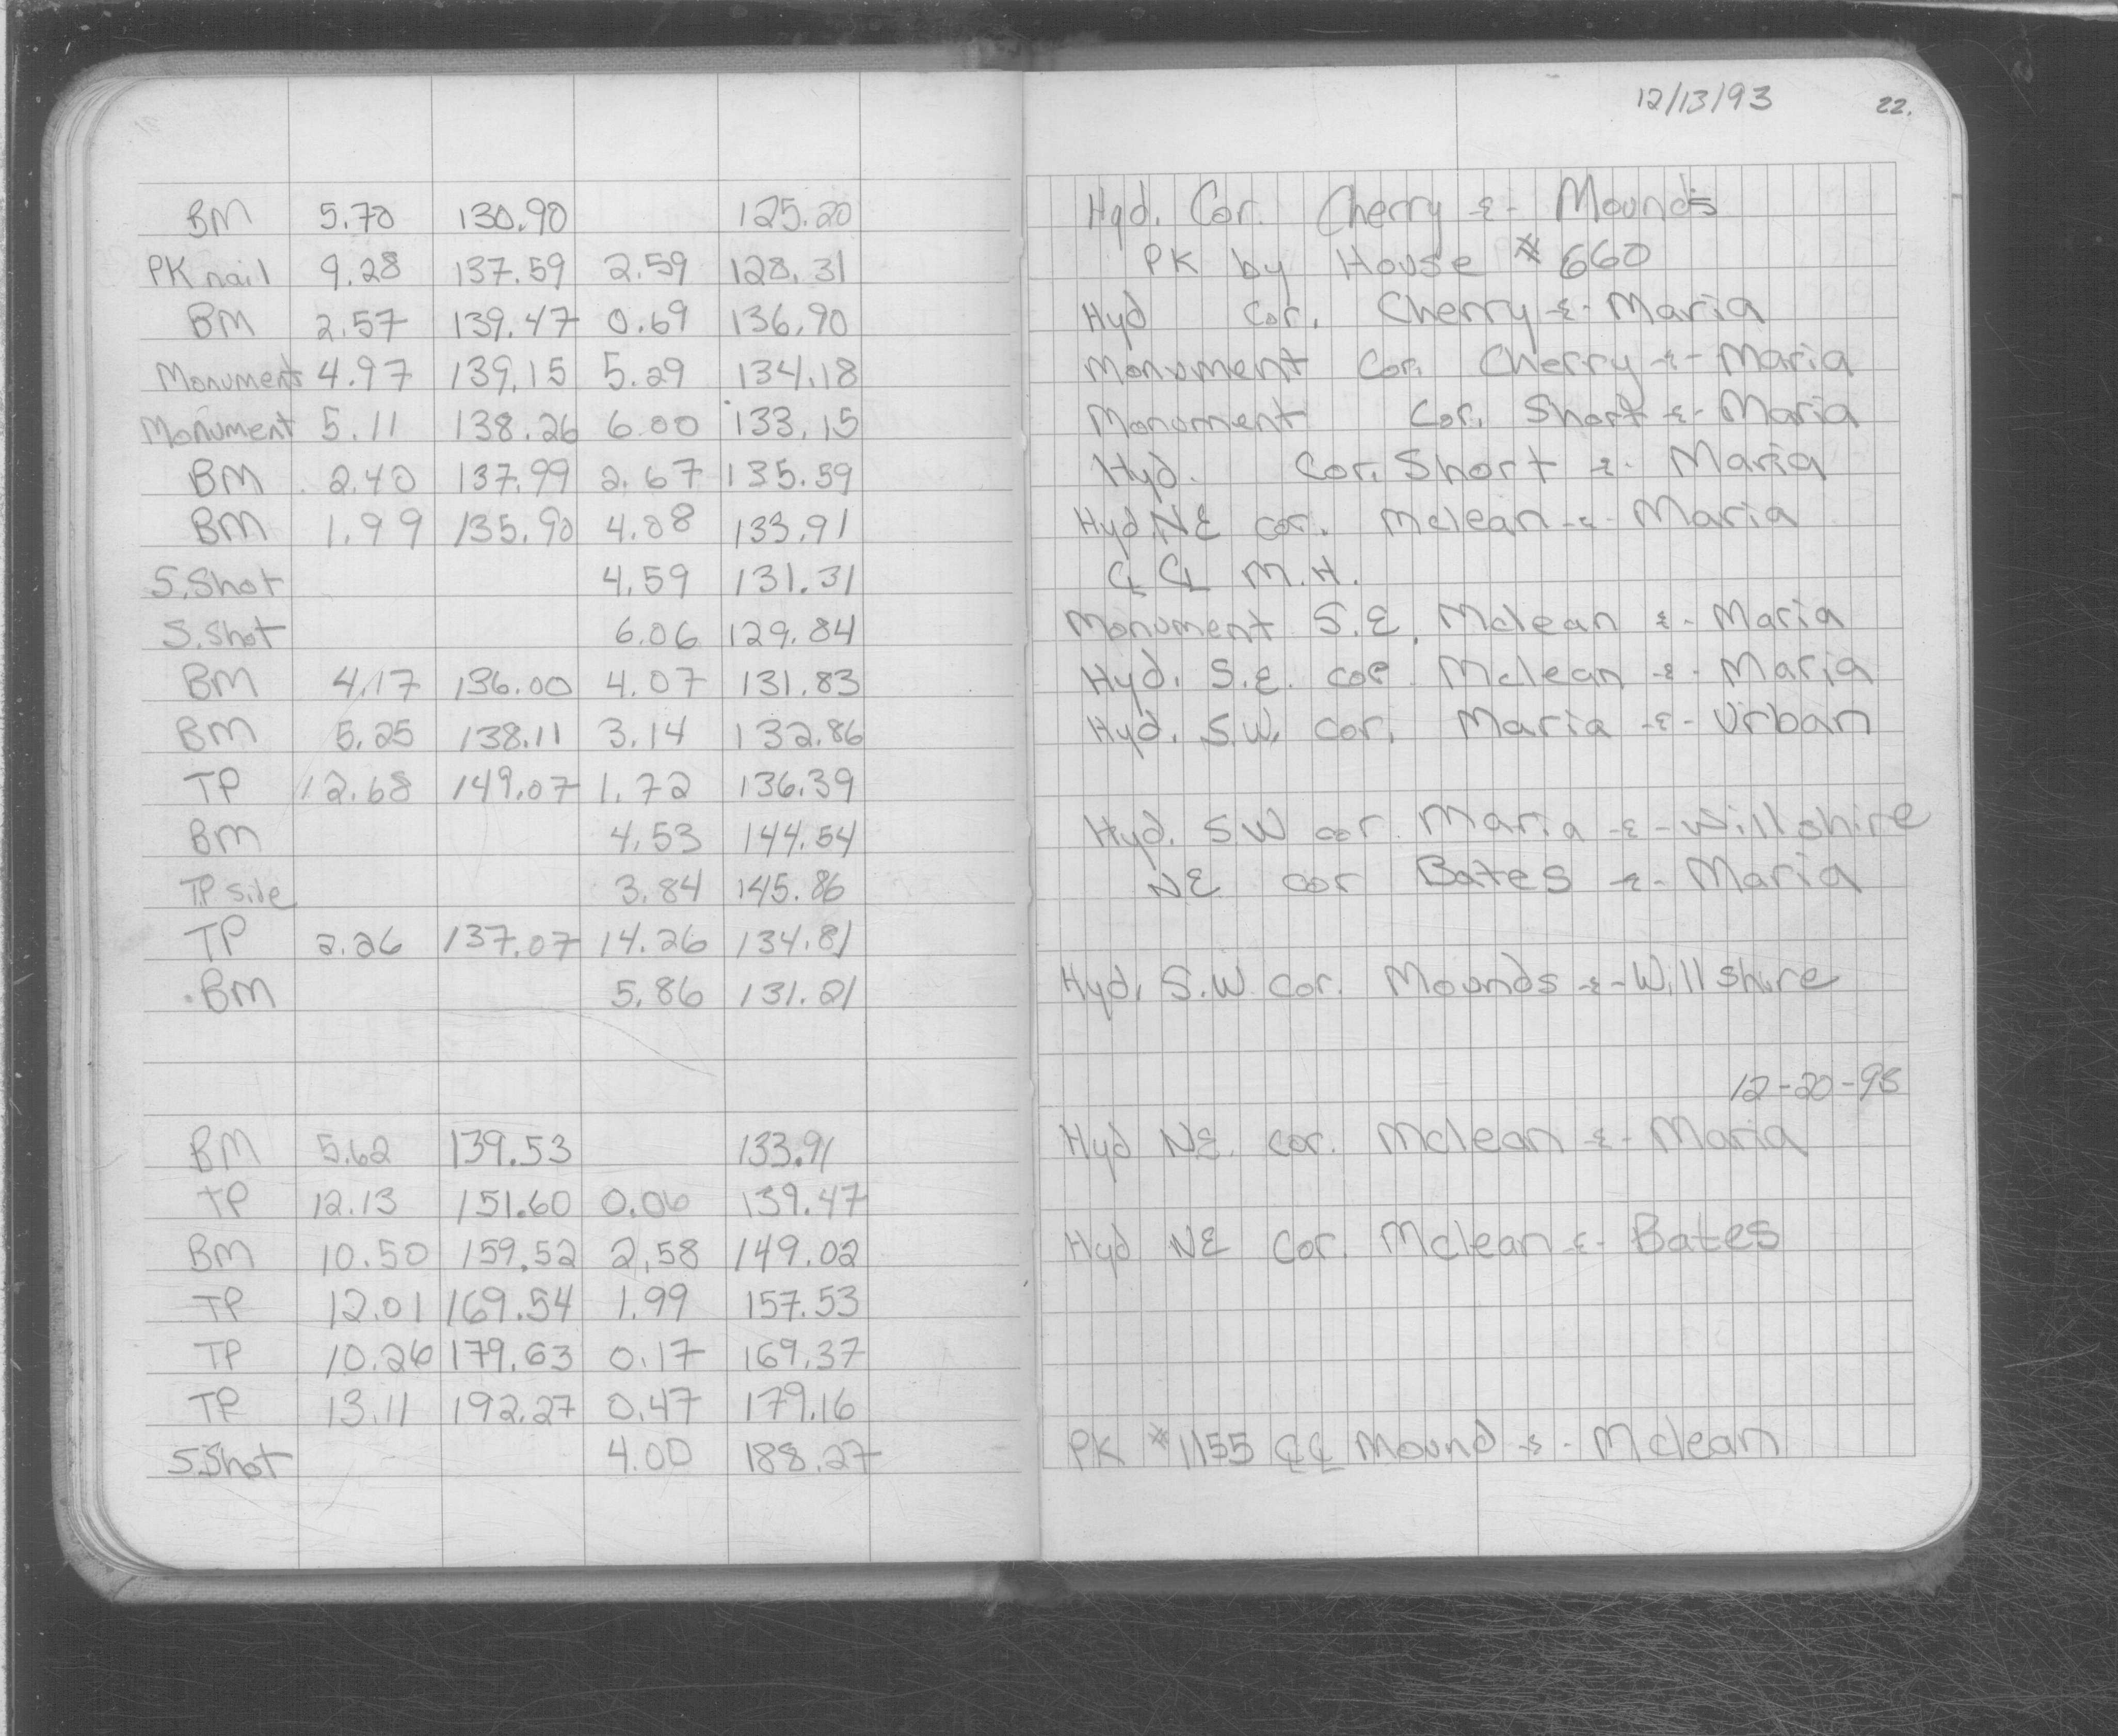 12/13/93 22.
BM 5.70 130.90 125.20 Hyd. Cor. Cherry & Mounds
PK nail 9.28 137.59 2.59 128.31 PK by House #660
BM 2.57 139.47 0.69 136.90 Hyd Cor. Cherry & Maria
Monument 4.97 139.15 5.29 134.18 Monument Cor. Cherry & Maria
Monument 5.11 138.26 6.00 133.15 Monument Cor. Short & Maria
BM 2.40 137.99 2.67 135.59 Hyd. Cor. Short & Maria
BM 1.99 135.90 4.08 133.91 Hyd NE cor. Mclean & Maria
S.Shot 4.59 131.31 ℄ ℄ M.H.
S.Shot 6.06 129.84 Monument S.E. Mclean & Maria
BM 4.17 136.00 4.07 131.83 Hyd. S.E. cor. Mclean & Maria
BM 5.25 138.11 3.14 132.86 Hyd. S.W. cor. Maria & Urban
TP 12.68 149.07 1.72 136.39
BM 4.53 144.54 Hyd. S.W cor. Maria & Willshire
TP side 3.84 145.86 NE cor Bates & Maria
TP 2.26 137.07 14.26 134.81
BM 5.86 131.21 Hyd. S.W. cor. Mounds & Willshire
12-20-93
BM 5.62 139.53 133.91 Hyd NE. cor. Mclean & Maria
TP 12.13 151.60 0.06 139.47
BM 10.50 159.52 2.58 149.02 Hyd NE Cor. Mclean & Bates
TP 12.01 169.54 1.99 157.53
TP 10.26 179.63 0.17 169.37
TP 13.11 192.27 0.47 179.16
S.Shot 4.00 188.27 PK #1155 ℄ ℄ Mound & Mclean